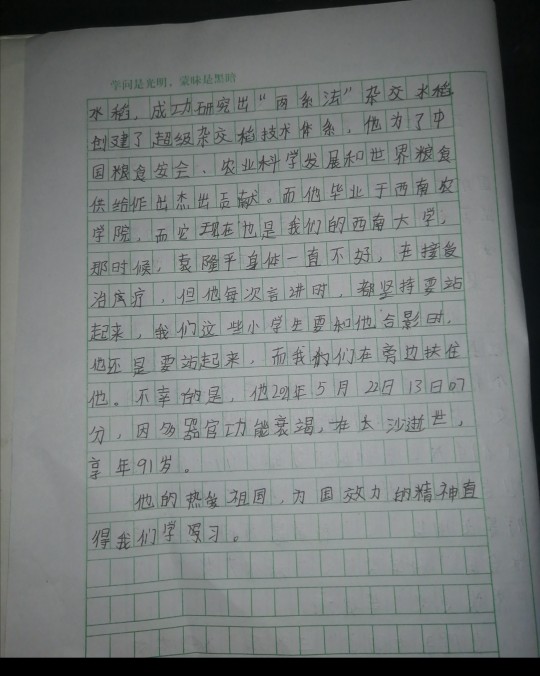 学问是光明，蒙昧是黑暗
水稻，成功研究出“两系法”杂交水稻
创建了超级杂交稻技术体系，他为了中
国粮食安会、农业科学发展和世界粮食
供给作出杰出贡献。而他毕业于西南农
学院，而它现在也是我们的西南大学，
那时候，袁隆平身体一直不好，在接受
治疗，但他每次言讲时，都坚持要站
起来，我们这些小学生要和他合影时，
他还是要站起来，而我们在旁边扶住
他。不幸的是，他2021年5月22日13日07
分，因多器官功能衰竭，在长沙逝世，
享年91岁。
他的热爱祖国，为国效力的精神直
得我们学习。